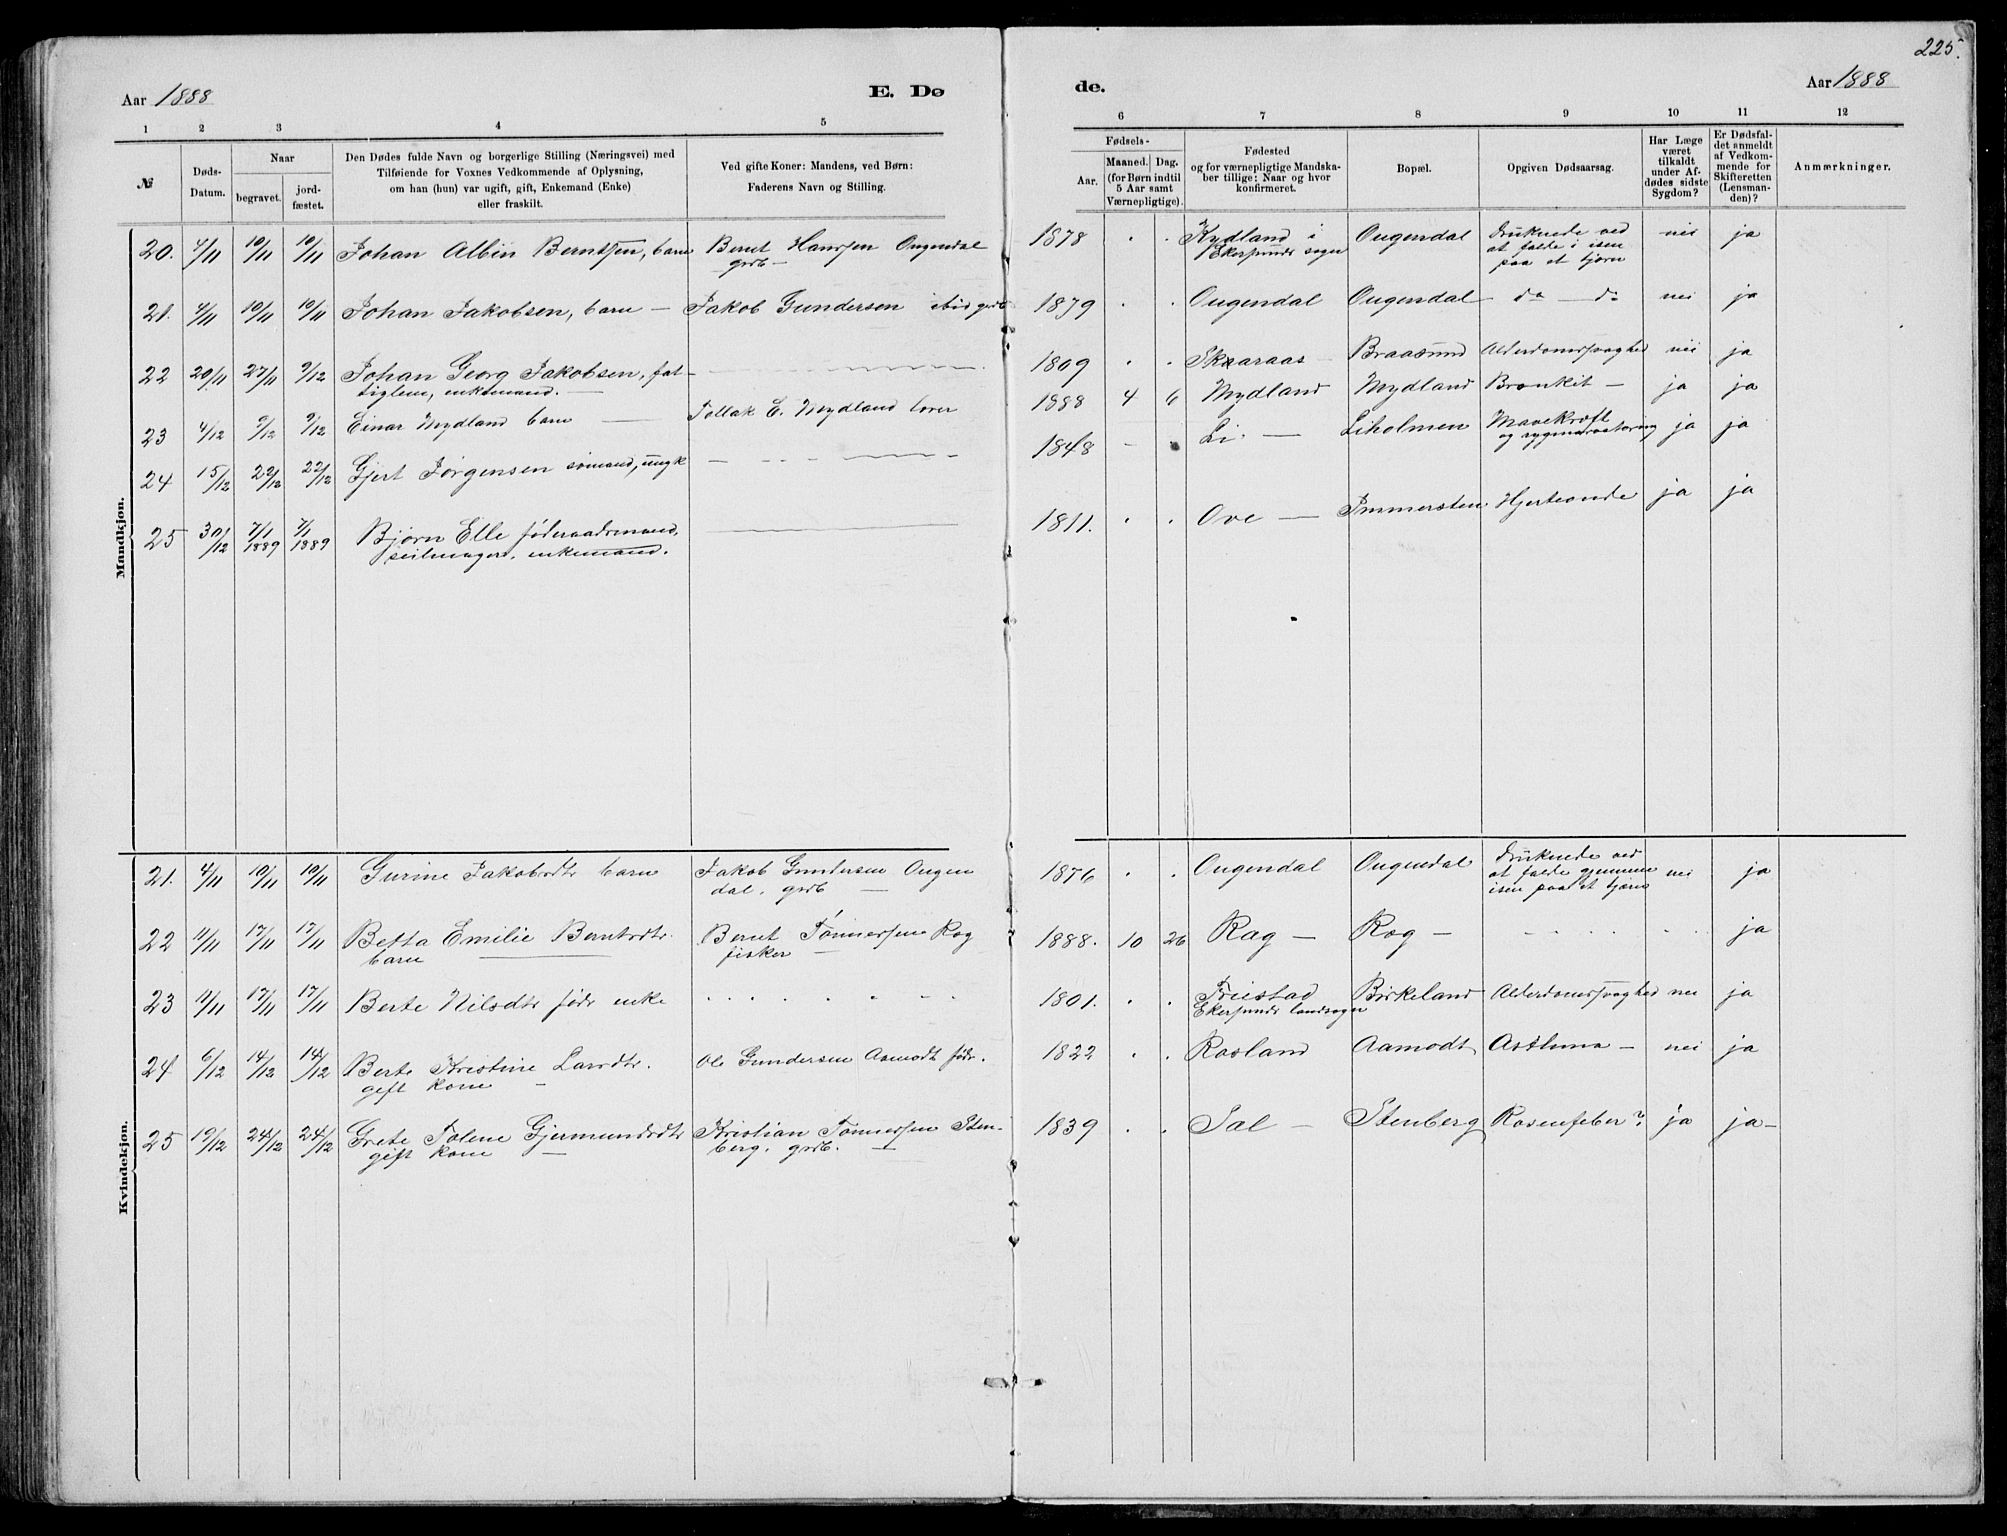 225.
Aar 1888
E. Dø
de.
Aar 1888
1 2 3 4 5
6 7 8 9 10 11 12
№
Døds-
Datum.
Naar
begravet.
jord-
fæstet.
Den Dødes fulde Navn og borgerlige Stilling (Næringsvei) med
Tilføiende for Voxnes Vedkommende af Oplysning,
om han (hun) var ugift, gift, Enkemand (Enke)
eller fraskilt.
Ved gifte Koner: Mandens, ved Børn:
Faderens Navn og Stilling.
Fødsels-
Aar.
Maaned. Dag.
(for Børn indtil
5 Aar samt
Værnepligtige).
Fødested
og for værnepligtige Mandska-
ber tillige: Naar og hvor
konfirmeret.
Bopæl.
Opgiven Dødsaarsag.
Har Læge
været
tilkaldt
under Af-
dødes sidste
Sygdom?
Er Dødsfal-
det anmeldt
af Vedkom-
mende for
Skifteretten
(Lensman-
den)?
Anmærkninger.
Mandkjøn.
20. 4/11 10/11 10/11 Johan Albin Berntsen, barn Bernt Hanssen Ougendal 1878 . . Kydland i Ougendal Druknede ved nei ja
grdb — Ekersunds sogn at falde i isen
paa et tjern
21. 4/11 10/11 10/11 Johan Jakobsen, barn — Jakob Gundersen ibid grdb 1879 . . Ougendal Ougendal do — do nei ja
22 20/11 27/11 9/12 Johan Georg Jakobsen, fat- 1809 . . Skaaraas Braasund Alderdomssvaghed nei ja
tiglem, enkemand. —
23 4/12 9/12 9/12 Einar Mydland barn — Tollak E. Mydland lærer 1888 4 6 Mydland Mydland Bronkit — ja ja
24 15/12 22/12 22/12 Gjert Jørgensen sømand, ungk 1848 — . Li. — Liholmen Mavekræft ja ja
og rygmarvstæring
25 30/12 7/1 1889 7/1 1889 Bjørn Elle føderaadsmand, 1811. . . Ove — Immersten Hjerteonde ja ja
seilmager, enkemand.
Kvindekjøn.
21. 4/11 10/11 10/11 Gurine Jakobsdtr barn Jakob Gundersen Ougen 1876 . . Ougendal Ougendal Druknede ved nei ja
dal. grdb — at falde gjennem
isen paa et tjern
22 11/11 17/11 17/11 Betta Emilie Berntsdtr. Bernt Tønnessen Rog 1888. 10 26 Rag — Rog — ja
barn — fisker —
23 11/11 17/11 17/11 Berte Nilsdtr fødr enke 1801. . . Friestad Birkeland Alderdomssvaghed nei ja
Ekersunds landsogn
24 6/12 14/12 14/12 Berte Kristine Larsdtr. Ole Gundersen Aamodt fødr. 1822 . . Rosland Aamodt Asthma — nei ja
gift kone —
25 19/12 24/12 24/12 Grete Tolene Gjermundsdtr Kristian Tønnessen Sten- 1839 . . Sal — Stenberg Rosenfeber? ja ja —
gift kone — berg, grdb. —